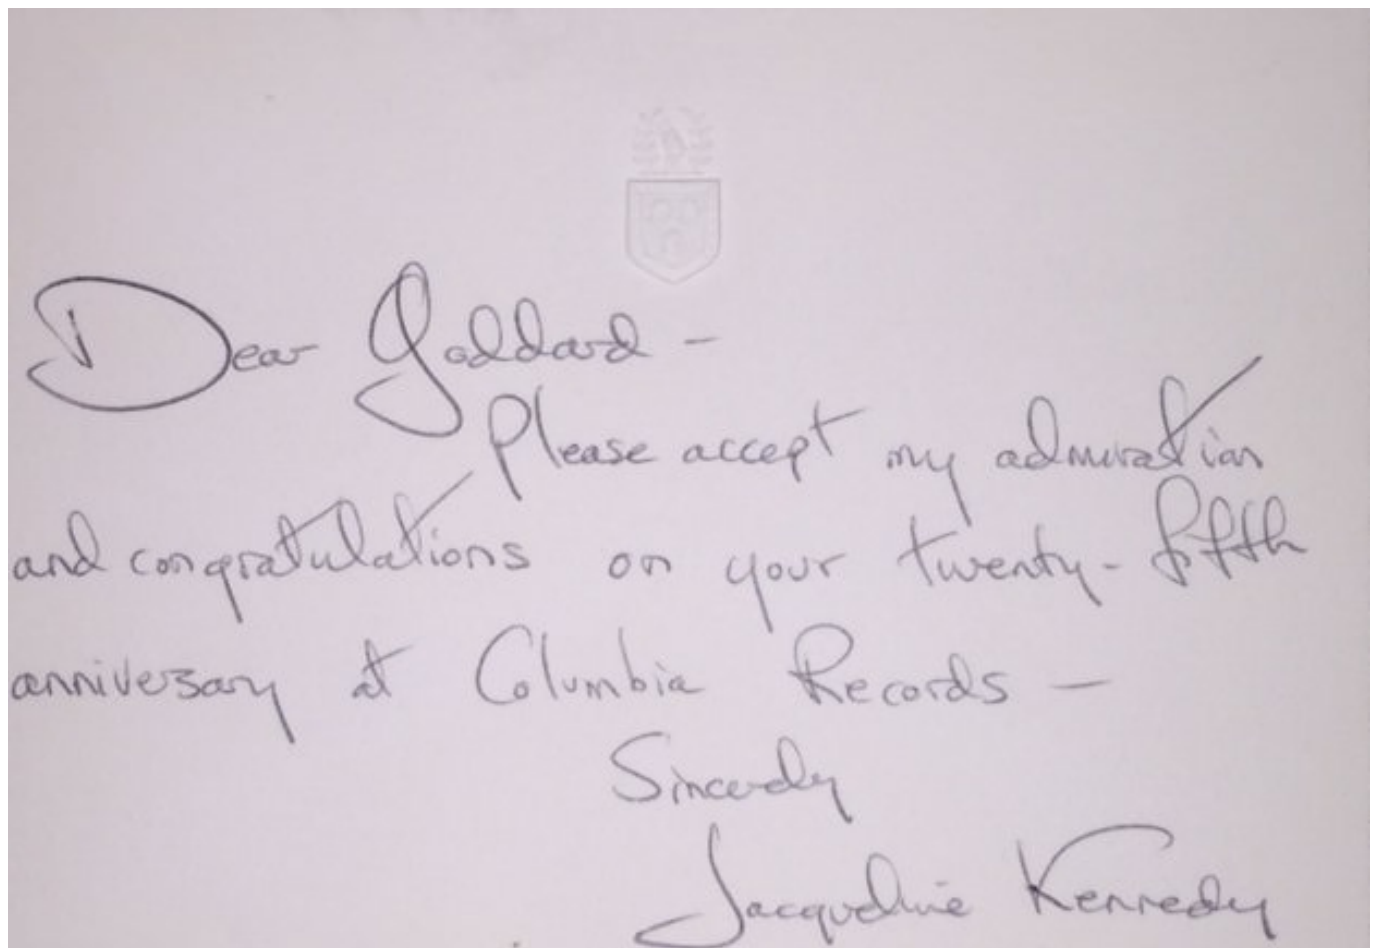 Dear Goddard –
Please accept my admiration
and congratulations on your twenty-fifth
anniversary at Columbia Records –
Sincerely
Jacqueline Kennedy